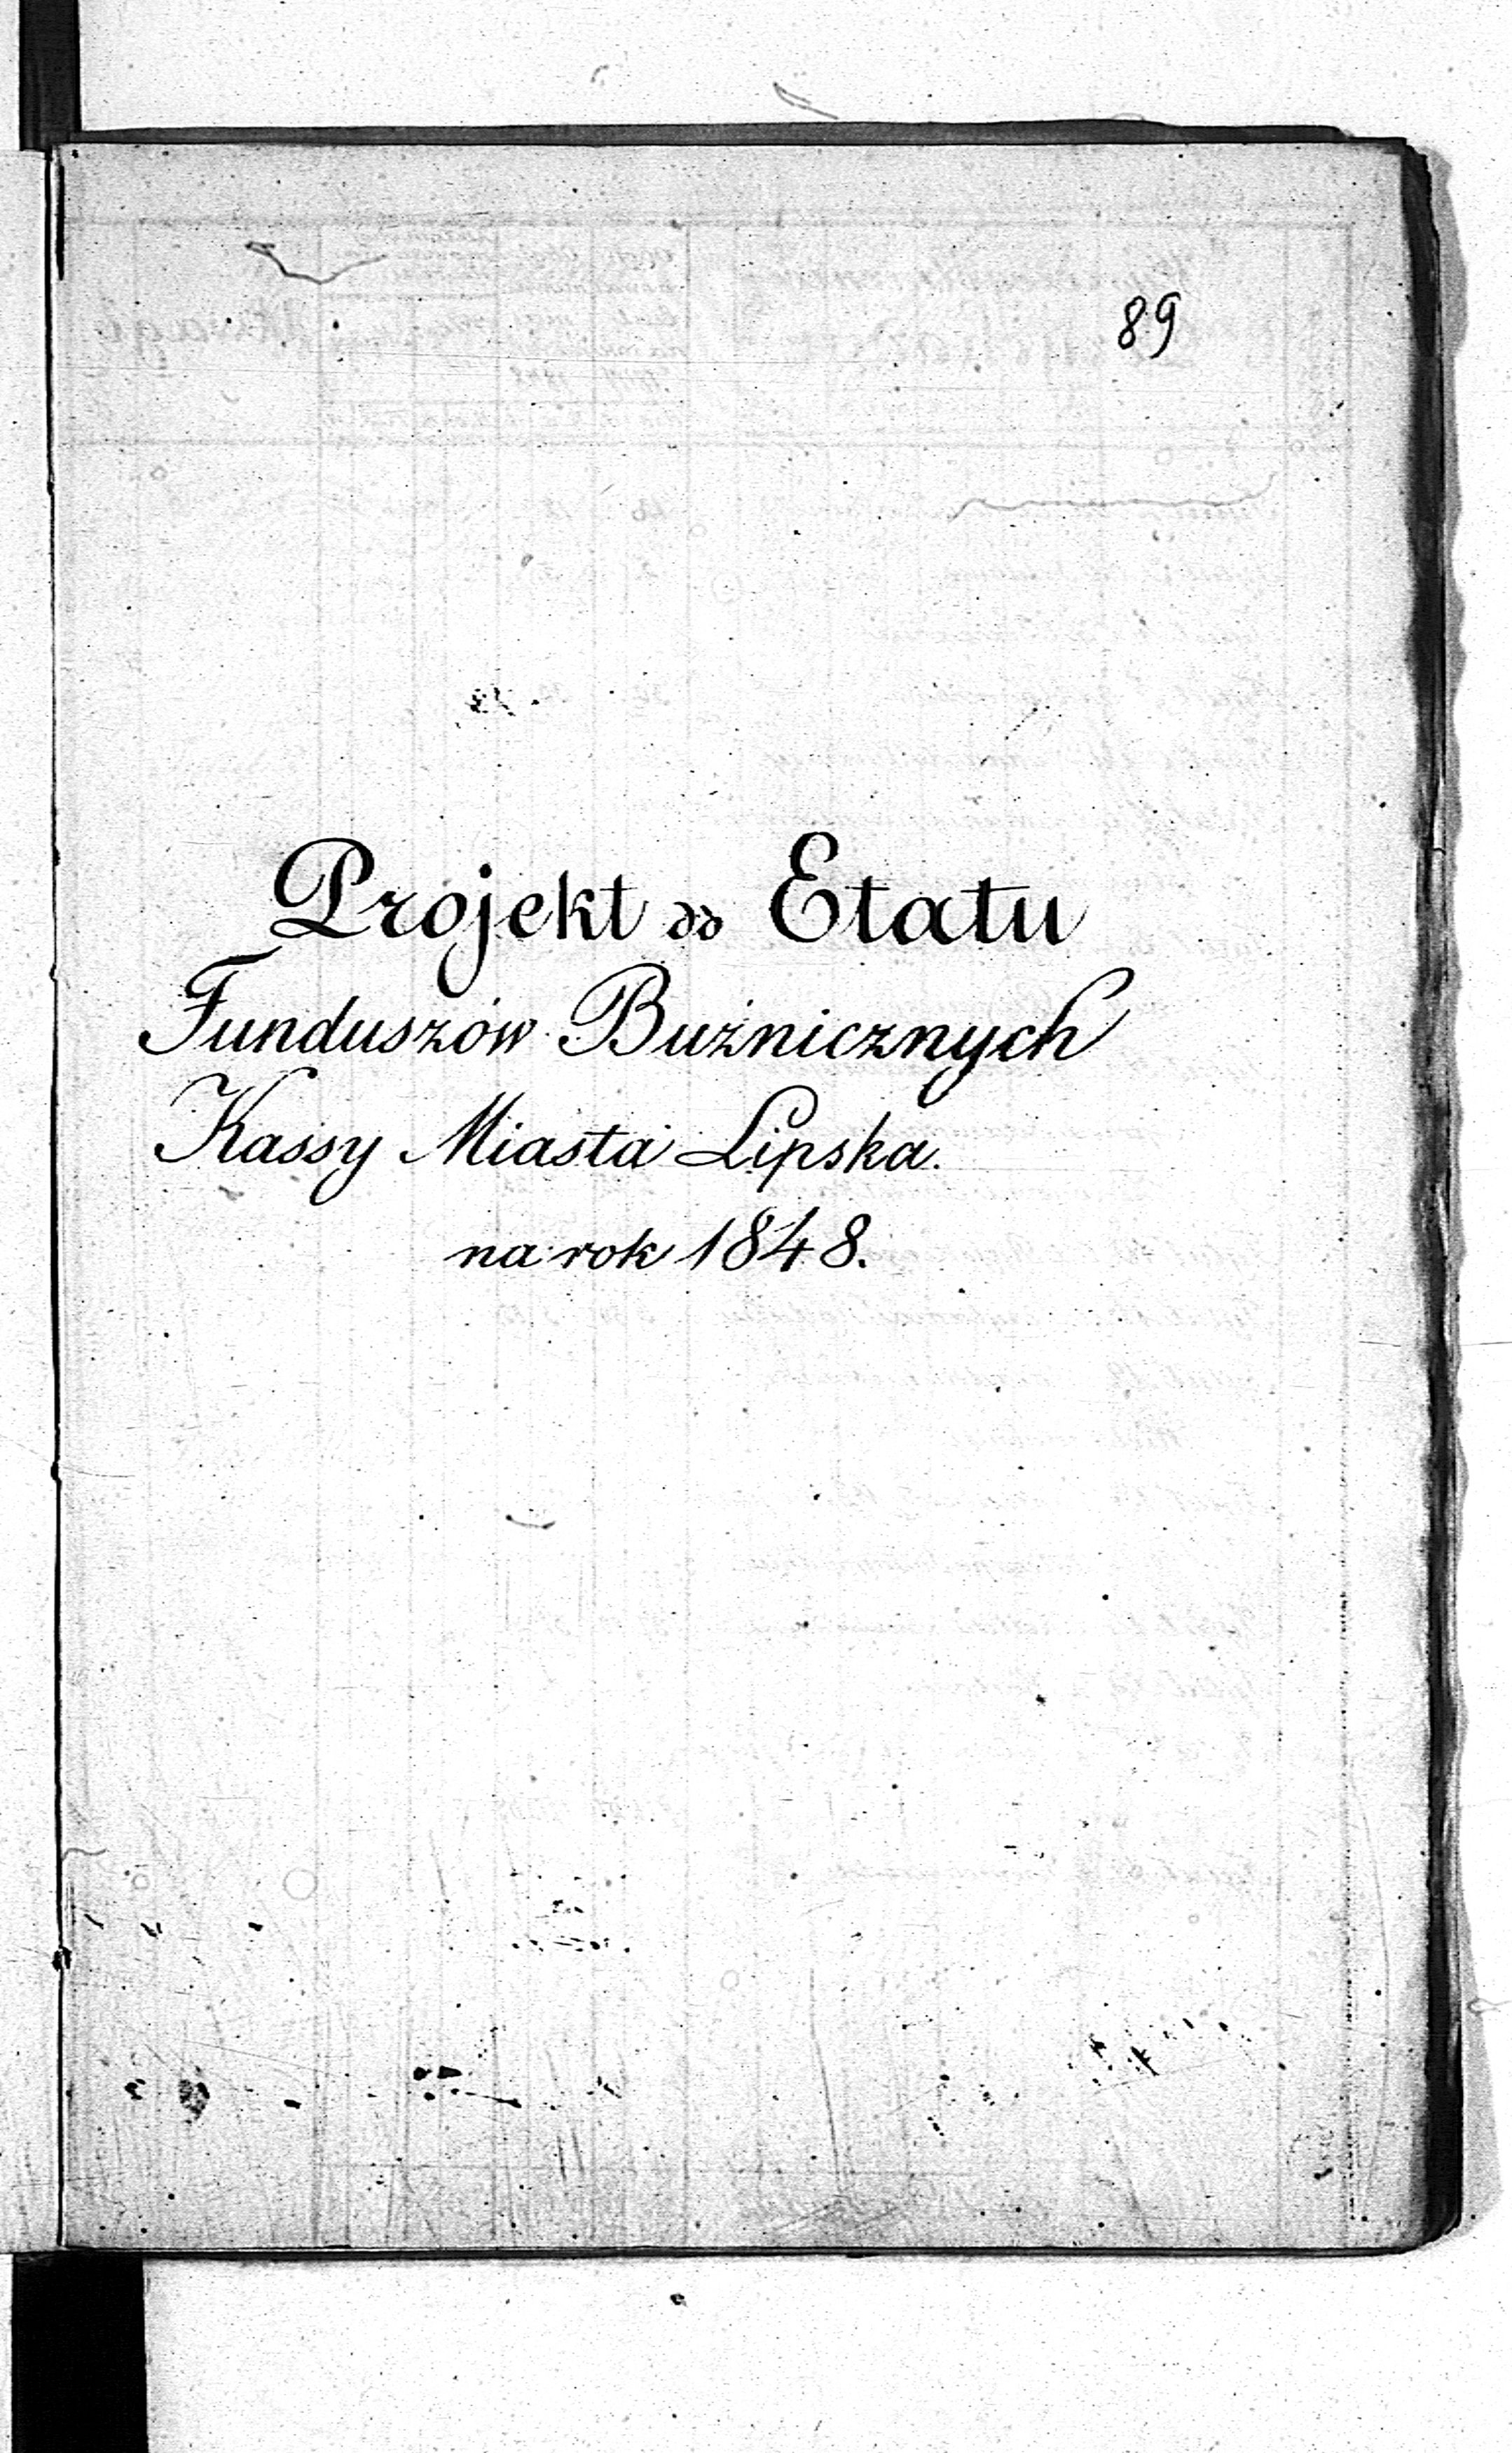 89
Projekt do Etatu
Funduszów Bużnicznych
Kassy Miasta Lipska.
na rok 1848.